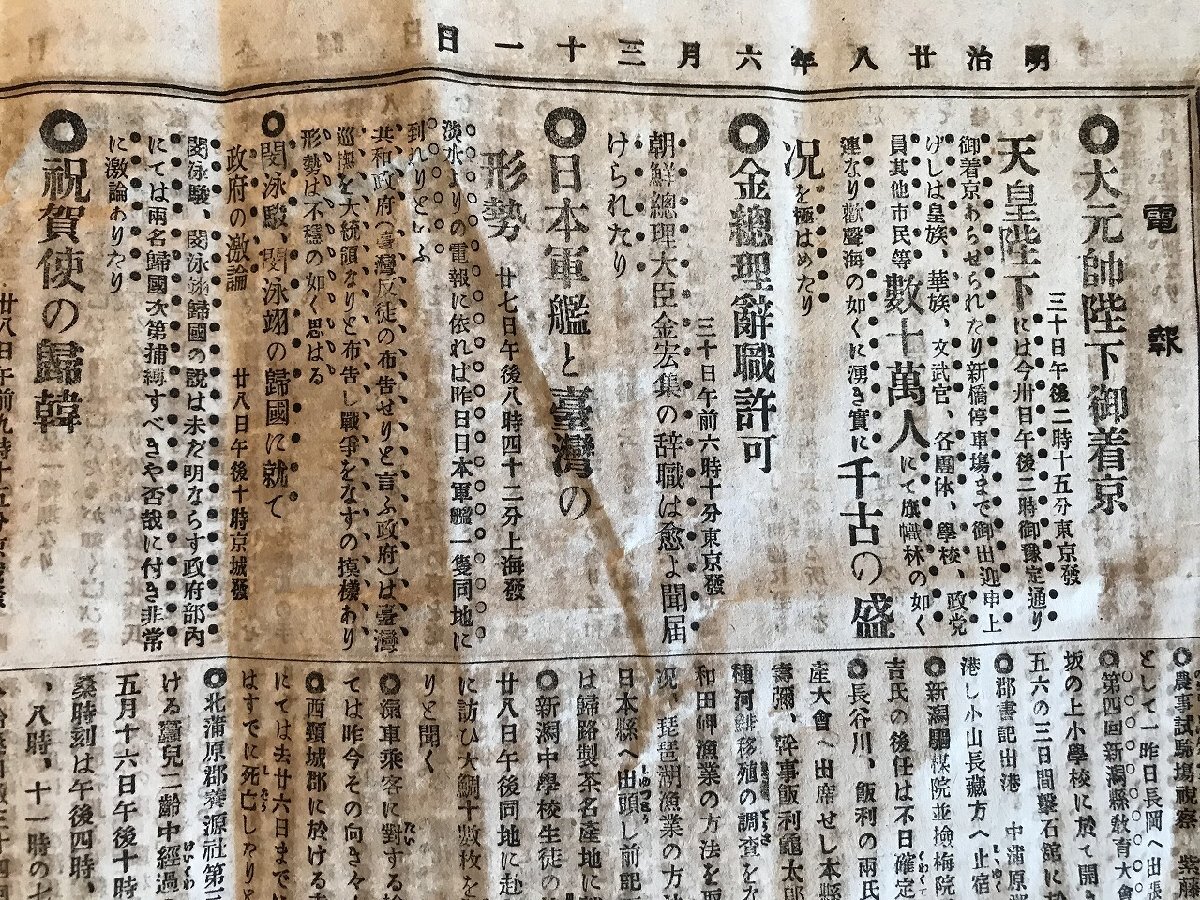 明治廿八年六月三十一日
電報
◎大元帥陛下御着京
三十日午後二時十五分東京發
天皇陛下には今卅日午後二時御豫定通り
御着京あらせられたり新橋停車塲まで御出迎申上
げしは皇族、華族、文武官、各團体、學校、政党
員其他市民等數十萬人にて旗幟林の如く
連なり歡聲海の如くに湧き實に千古の盛
况を極はめたり
◎金總理辭職許可
三十日午前六時十分東京發
朝鮮總理大臣金宏集の辞職は愈よ聞届
けられたり
◎日本軍艦と臺灣の
形勢
廿七日午後八時四十二分上海發
淡水よりの電報に依れは昨日日本軍艦一隻同地に
到れりといふ
共和政府(臺灣反徒の布告せりと言ふ政府)は臺灣
巡撫を大統領なりと布告し戰爭をなすの摸樣あり
形勢は不穩の如く思はる
◎閔泳駿、閔泳翊の歸國に就て
政府の激論
廿八日午後十時京城發
閔泳駿、閔泳翊歸國の説は未だ明ならす政府部內
にては兩名歸國次第捕縛すべきや否哉に付き非常
に激論ありたり
◎祝賀使の歸韓
廿八日午前九時十五分京城發
◎農事試驗塲視察
として一昨日長岡へ出張
◎第四回新潟縣敎育大會
坂の上小學校に於て開
五六の三日間擊石舘に於
◎郡書記出港 中蒲原郡
港し小山長藏方へ止宿
◎新潟驅梅院並檢梅院
吉氏の後任は不日確定
◎長谷川、飯利の兩氏
產大會へ出席せし本縣
壽彌、幹事飯利竈太郎
種河緋移殖の調査をな
和田岬漁業の方法を取
况、琵琶湖漁業の方法
日本縣へ出頭し前記
は歸路製茶名產地に
◎新潟中學校生徒の
廿八日午後同地に赴
に訪ひ大鯛十數枚を
りと聞く
◎漁車乘客に對する
ては昨今その向き々
◎西頸城郡に於ける
にては去廿六日まで
はすでに死亡しをりと
◎北蒲原郡養源社第三
ける蠶兒二齡中經過の
五月十六日午後十時
桑時刻は午後四時、
、八時、十一時の七